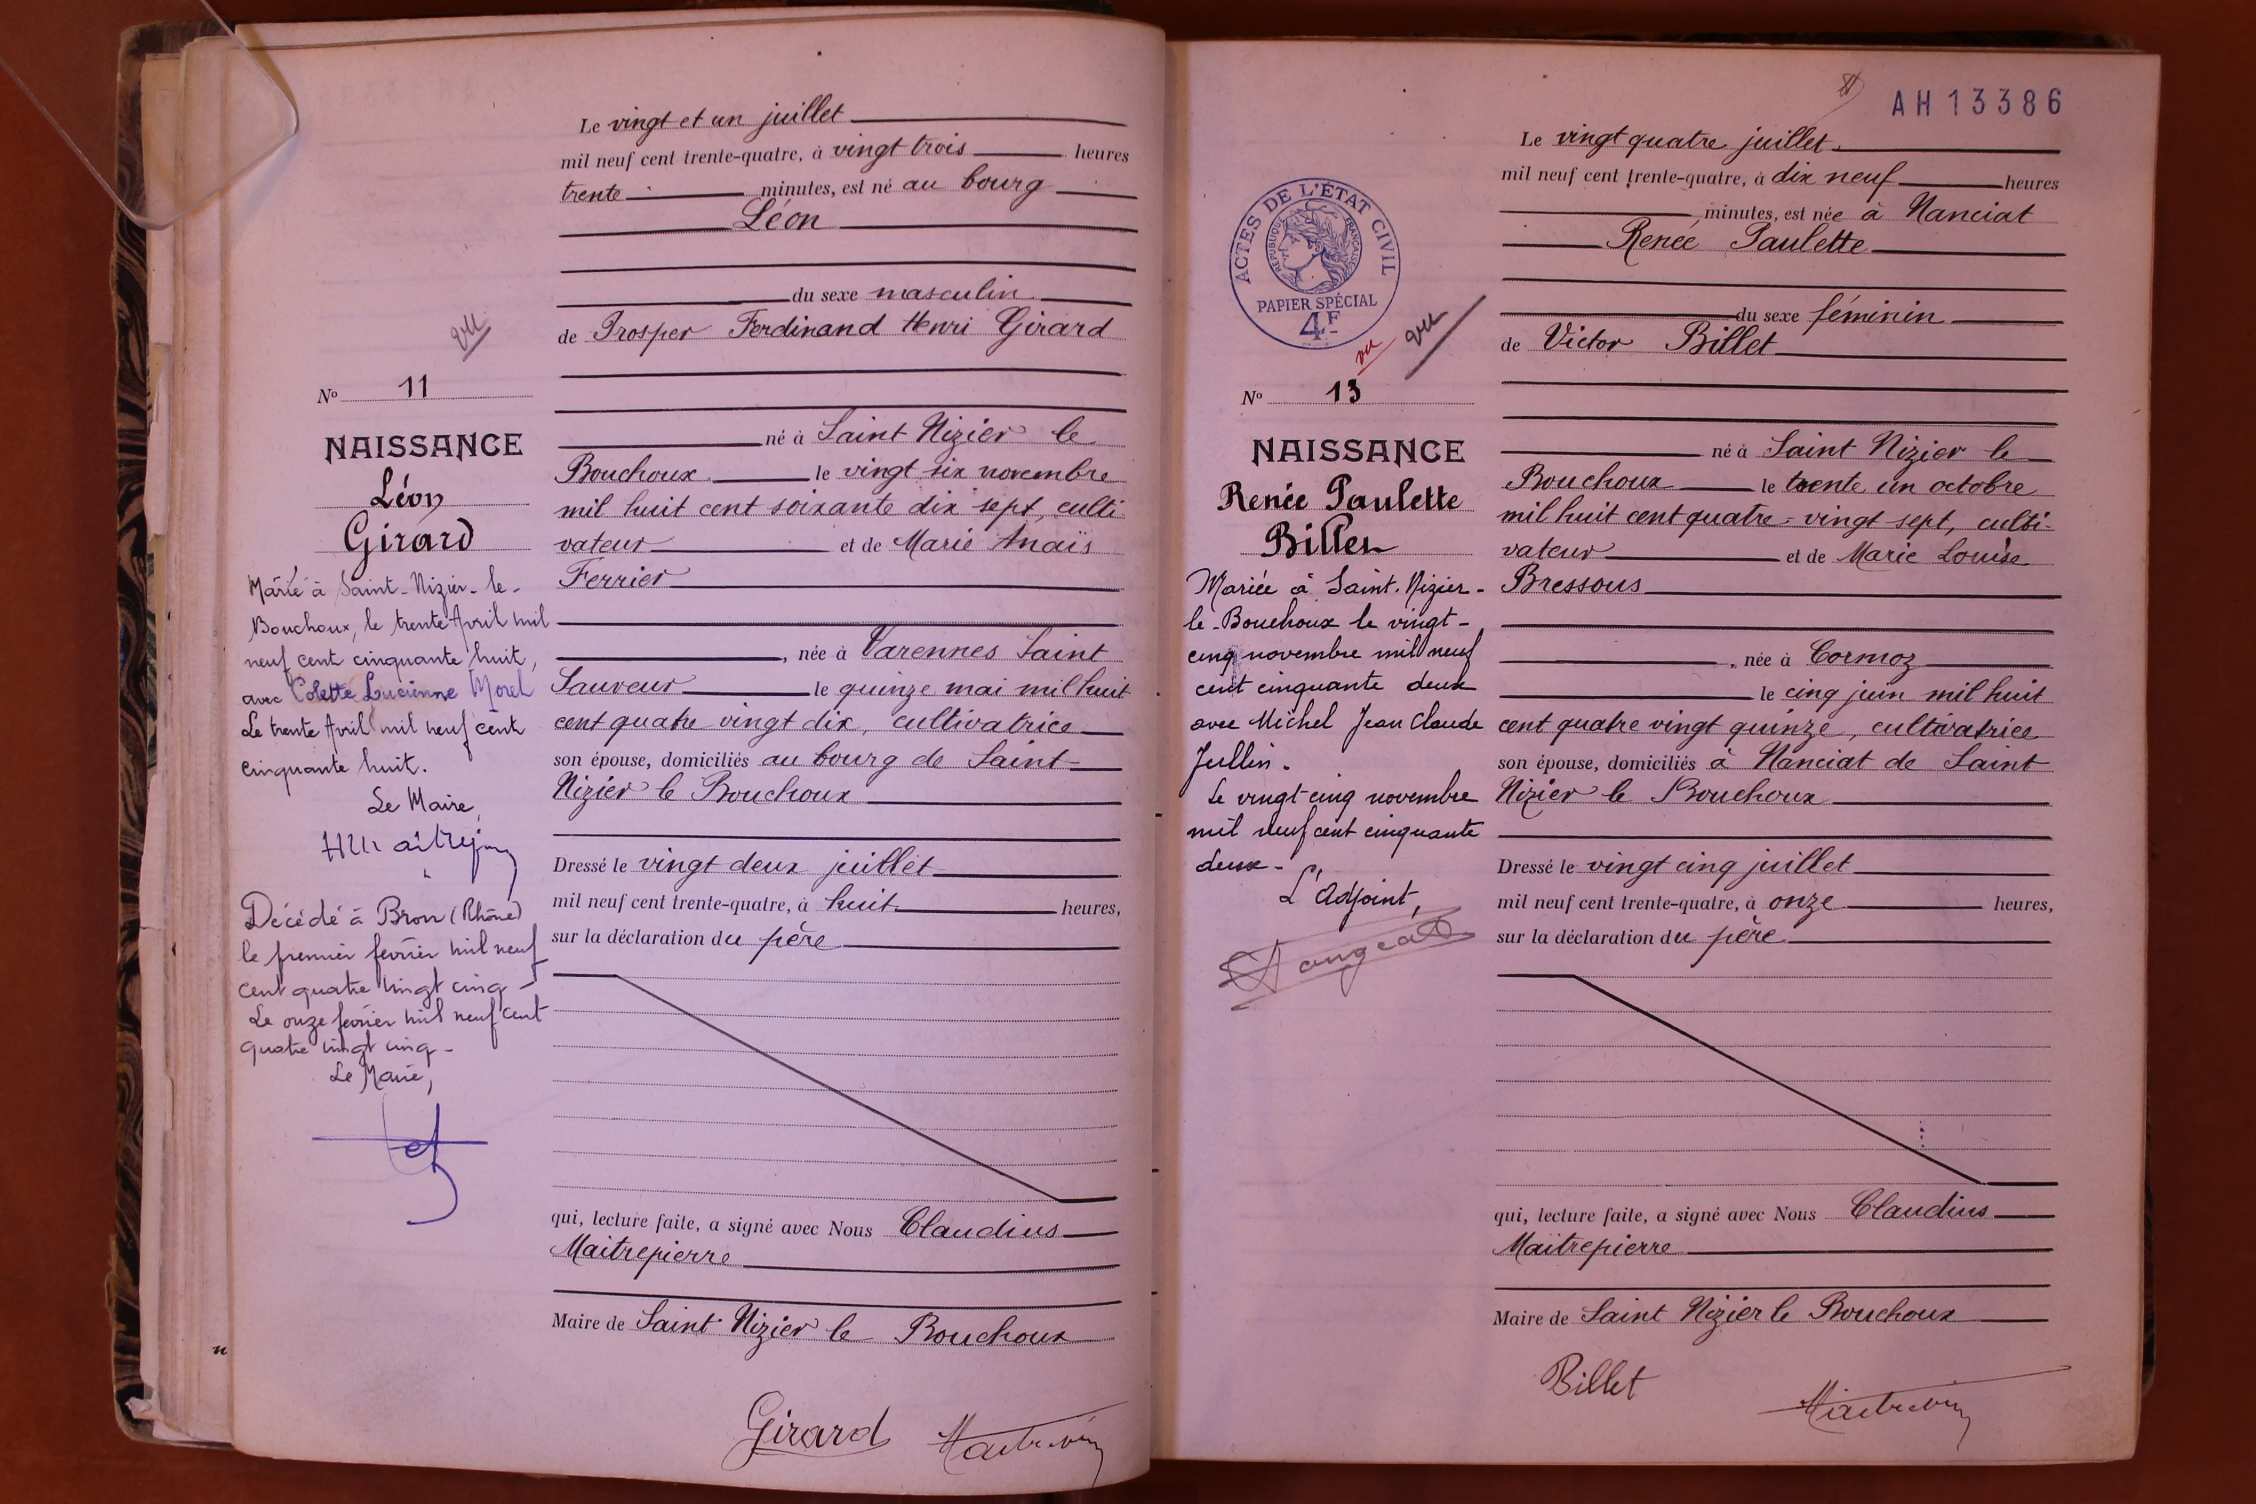 Le vingt et un juillet
mil neuf cent trente-quatre, à vingt trois heures
trente minutes, est né au bourg
Léon
du sexe masculin
vu
de Prosper Ferdinand Henri Girard
Nº 11
né à Saint Nizier le
NAISSANCE
Bouchoux le vingt six novembre
Léon
mil huit cent soixante dix sept, culti
Girard
vateur et de Marie Anaïs
Ferrier
Marié à Saint-Nizier-le-
Bouchoux, le trente Avril mil
neuf cent cinquante huit,
avec Colette Lucienne Morel
Le trente Avril mil neuf cent
cinquante huit.
Le Maire,
Décédé à Bron (Rhône)
le premier février mil neuf
cent quatre vingt cinq -
Le onze février mil neuf cent
quatre vingt cinq -
Le Maire,
, née à Varennes Saint
Sauveur le quinze mai mil huit
cent quatre vingt dix, cultivatrice
son épouse, domiciliés au bourg de Saint-
Nizier le Bouchoux
Dressé le vingt deux juillet
mil neuf cent trente-quatre, à huit heures,
sur la déclaration du père
qui, lecture faite, a signé avec Nous Claudius
Maitrepierre
Maire de Saint Nizier le Bouchoux
Girard
AH13386
Le vingt quatre juillet
mil neuf cent trente-quatre, à dix neuf heures
minutes, est née à Nanciat
Renée Paulette
ACTES DE L'ÉTAT CIVIL
RÉPUBLIQUE FRANÇAISE
PAPIER SPÉCIAL
4F
vu
vu
du sexe féminin
de Victor Billet
Nº 13
né à Saint Nizier le
NAISSANCE
Bouchoux le trente un octobre
Renée Paulette
mil huit cent quatre-vingt sept, culti-
Billet
vateur et de Marie Louise
Bressous
Mariée à Saint-Nizier-
le-Bouchoux le vingt-
cinq novembre mil neuf
cent cinquante deux
avec Michel Jean Claude
Jullin.
Le vingt-cinq novembre
mil neuf cent cinquante
deux-
L'Adjoint,
, née à Cormoz
le cinq juin mil huit
cent quatre vingt quinze, cultivatrice
son épouse, domiciliés à Nanciat de Saint
Nizier le Bouchoux
Dressé le vingt cinq juillet
mil neuf cent trente-quatre, à onze heures,
sur la déclaration du père
qui, lecture faite, a signé avec Nous Claudius
Maitrepierre
Maire de Saint Nizier le Bouchoux
Billet